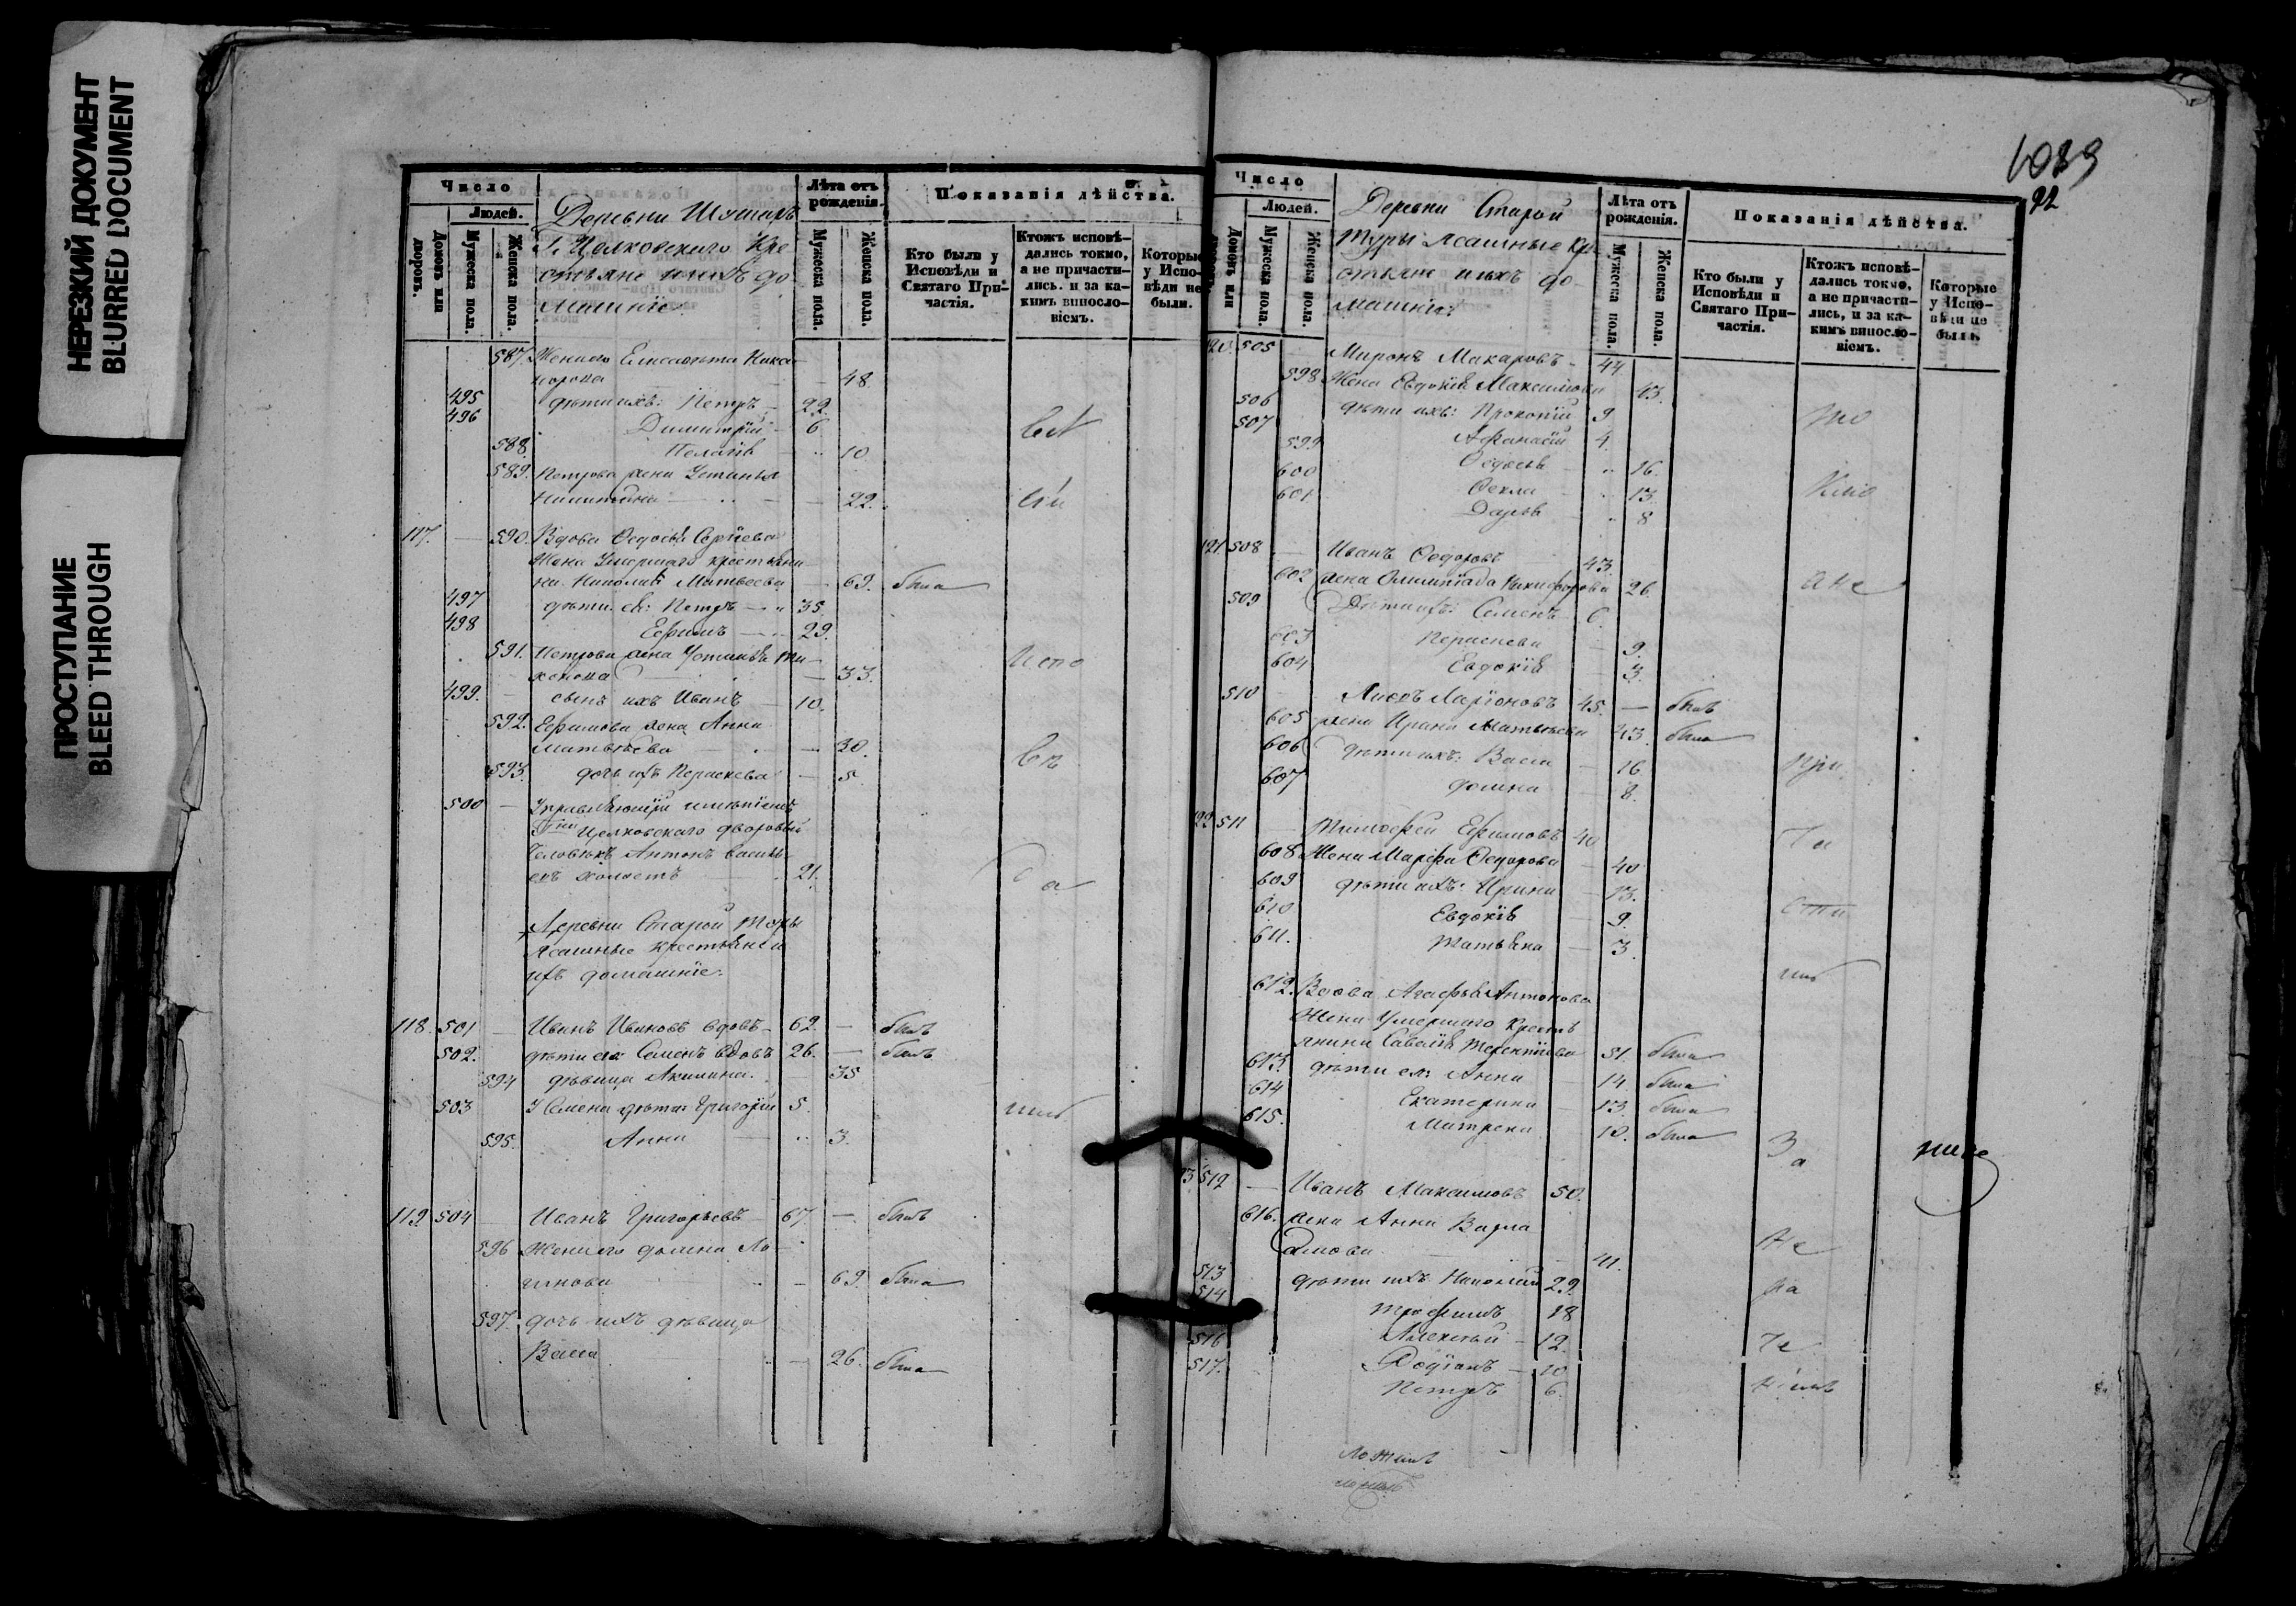 НЕРЕЗКИЙ ДОКУМЕНТ
BLURRED DOCUMENT
ПРОСТУПАНИЕ
BLEED THROUGH
Число
Людей.
Домовъ или дворовъ.
Мужеска пола.
Женска пола.
Деревни
Г. Целковскаго Кре
стьяне и ихъ до
машніе:
Лѣта отъ рожденія.
Мужеска пола.
Женска пола.
Показанія дѣйства.
Кто были у Исповѣди и Святаго Причастія.
Ктожъ исповѣдались токмо, а не причастились. и за какимъ винословіемъ.
Которые у Исповѣди не были.
587. Жена его Елисавета Ника
норова 48.
495 дѣти ихъ: Петръ 22.
496 Димитрій 6
588. Пелагія 10
589. Петрова жена Устинья
Никитина 22.
117. 590. Вдова Ѳедосья Сергѣева
Жена Умершаго крестьяни
на Матвеева 69. была
497 дѣти ея: Петръ 35.
498 Ефимъ 29.
591. Петрова жена Устинья Ти
хонова 33.
499. сынъ ихъ Иванъ 10.
592. Ефимова жена Анна
Матвѣева 30.
593. дочь ихъ Параскева 5.
500 Управляющій имѣніемъ
Целковскаго дворовый
человѣкъ Антонъ Василь
евъ холостъ 21.
Деревни Старой Туры
Ясашные крестьяне и
ихъ домашніе:
118. 501 Иванъ Ивановъ вдовъ 62. былъ
502. дѣти его: Семенъ вдовъ 26. былъ
594 дѣвица Акилина 35
503 У Семена дѣти: Григорій 5.
595. Анна 3.
119 504 Иванъ Григорьевъ 67 былъ
596 Жена его Домна Ло
гинова 69. была
597. дочь ихъ дѣвица
Васса 26. была
1089
92
Число
Людей.
Домовъ или
Мужеска пола.
Женска пола.
Деревни Старой
Туры Ясашные кре
стьяне и ихъ до
машніе:
Лѣта отъ рожденія.
Мужеска пола.
Женска пола.
Показанія дѣйства.
Кто были у Исповѣди и Святаго Причастія.
Ктожъ исповѣдались токмо, а не причастились, и за какимъ винословіемъ.
Которые у Исповѣди не были.
120. 505 Миронъ Макаровъ 44
598 Жена Евдокія Максимова 43.
506 дѣти ихъ: Прокопій 9
507 Афанасій 4.
599 Ѳедосья 16.
600 Ѳекла 13.
601 Дарья 8
121 508 Иванъ Ѳедоровъ 43
602 жена Олимпіада Никифорова 26.
509 Дѣти ихъ: Семенъ 6.
603 Параскева 9.
604 Евдокія 3.
510 Ларіоновъ 45. былъ
605 жена Ирина Матвѣева 43. была
606 дѣти ихъ: Васса 16
607 Домна 8.
122 511 Тимофей Ефимовъ 40
608 Жена Марфа Ѳедорова 40
609 дѣти ихъ: Ирина 13.
610 Евдокія 9.
611. Татьяна 3.
612. Вдова Агафья Антонова
Жена Умершаго Кресть
янина Савелія Терентіева 51. была
613. дѣти ея: Анна 14 была
614 Екатерина 13. была
615. Матрена 10. была
512 Иванъ Максимовъ 50.
616. жена Анна Варла
амова 41.
513 дѣти ихъ: 29.
514 Трофимъ 18
Алексѣй 12.
516 Родіонъ 10
517. Петръ 6.